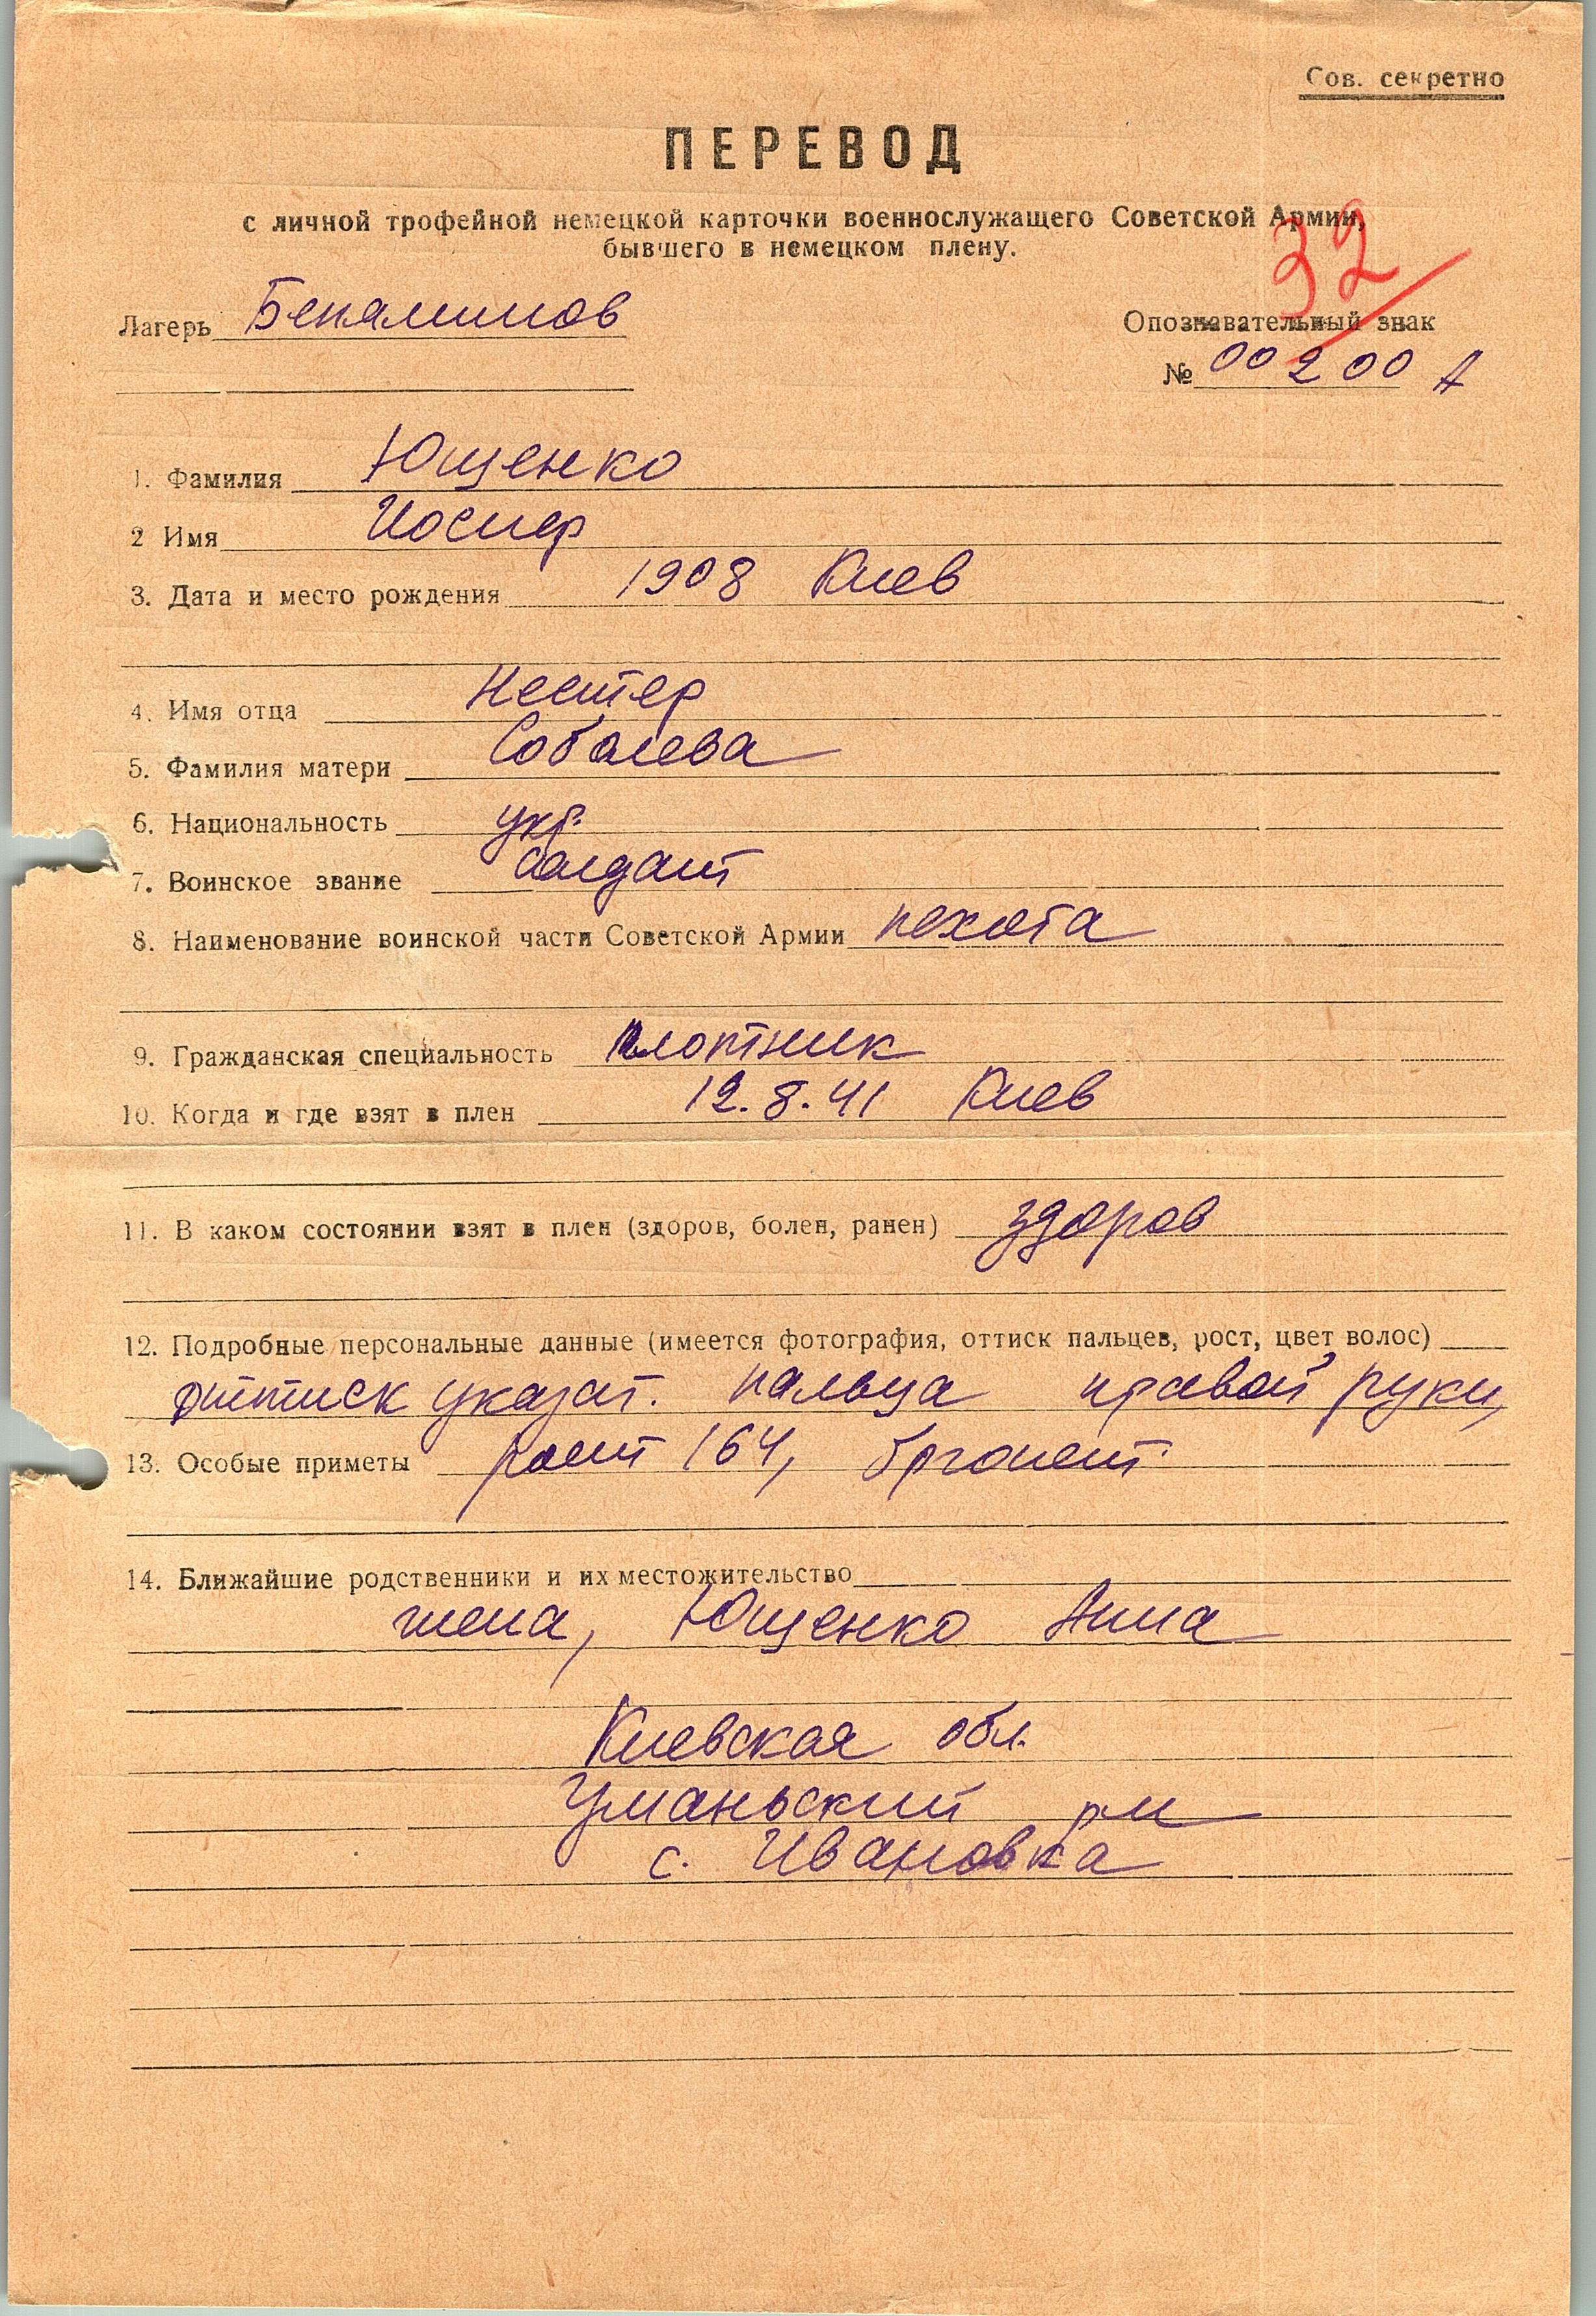 Сов. секретно
ПЕРЕВОД
с личной трофейной немецкой карточки военнослужащего Советской Армии,
бывшего в немецком плену.
32
Лагерь Беняминов
Опознавательный знак
№ 00200 А
1. Фамилия Ющенко
2 Имя Иосиф
3. Дата и место рождения 1908 Киев
4. Имя отца Нестер
5. Фамилия матери Соболева
6. Национальность укр.
7. Воинское звание солдат
8. Наименование воинской части Советской Армии пехота
9. Гражданская специальность плотник
10. Когда и где взят в плен 12.8.41 Киев
11. В каком состоянии взят в плен (здоров, болен, ранен) здоров
12. Подробные персональные данные (имеется фотография, оттиск пальцев, рост, цвет волос)
оттиск указат. пальца правой руки,
13. Особые приметы рост 164, брюнет.
14. Ближайшие родственники и их местожительство
жена, Ющенко Анна
Киевская обл.
Уманьский рн
с. Ивановка